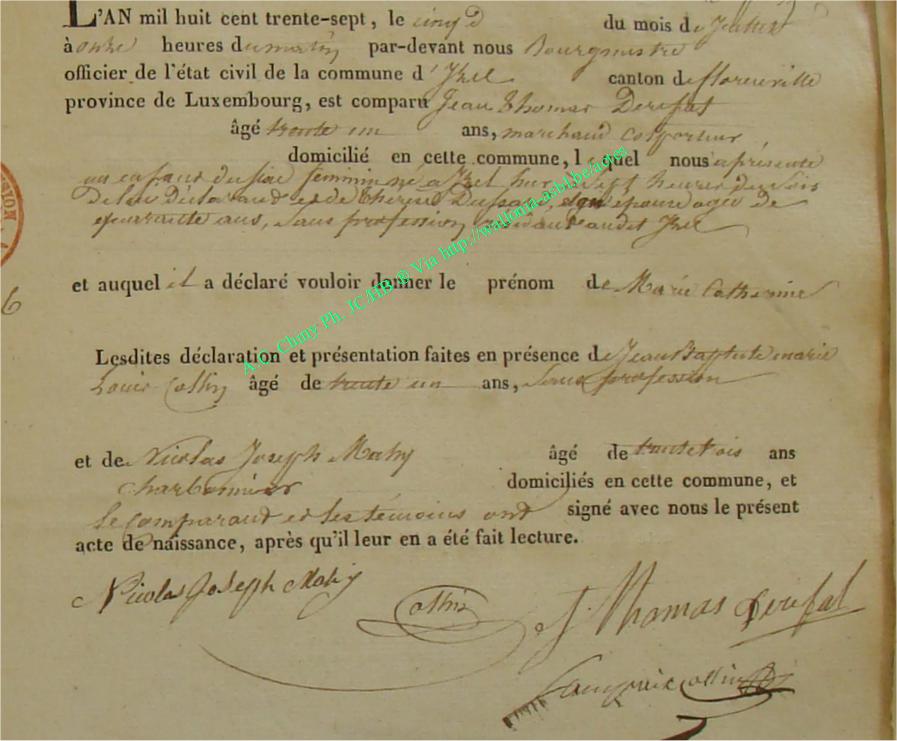 L'AN mil huit cent trente-sept, le cinq du mois de Juillet
à onze heures du matin par-devant nous Bourgmestre
officier de l'état civil de la commune d'Izel canton de florenville
province de Luxembourg, est comparu Jean Thomas Derifat
âgé trente un ans, marchand colporteur
domicilié en cette commune, lequel nous a présenté
un enfant du sexe féminin né a Izel hier sept heures du soir
de lui Déclarant et de Thérèse son épouse agée de
quarante ans, sans profession audit Izel
et auquel il a déclaré vouloir donner le prénom de Marie Catherine
Lesdites déclaration et présentation faites en présence de Jean Baptiste marie
Louis Collin âgé de trente un ans, sans profession
et de Nicolas Joseph Mahy âgé de trente trois ans
charbonnier domiciliés en cette commune, et
le comparant et les témoins ont signé avec nous le présent
acte de naissance, après qu'il leur en a été fait lecture.
Nicolas Joseph Mahy Collin J. Thomas Derifat
collin
6
A.D. Chiny Ph. JC/HB ® Via http://wallonia-asbl.be/actes